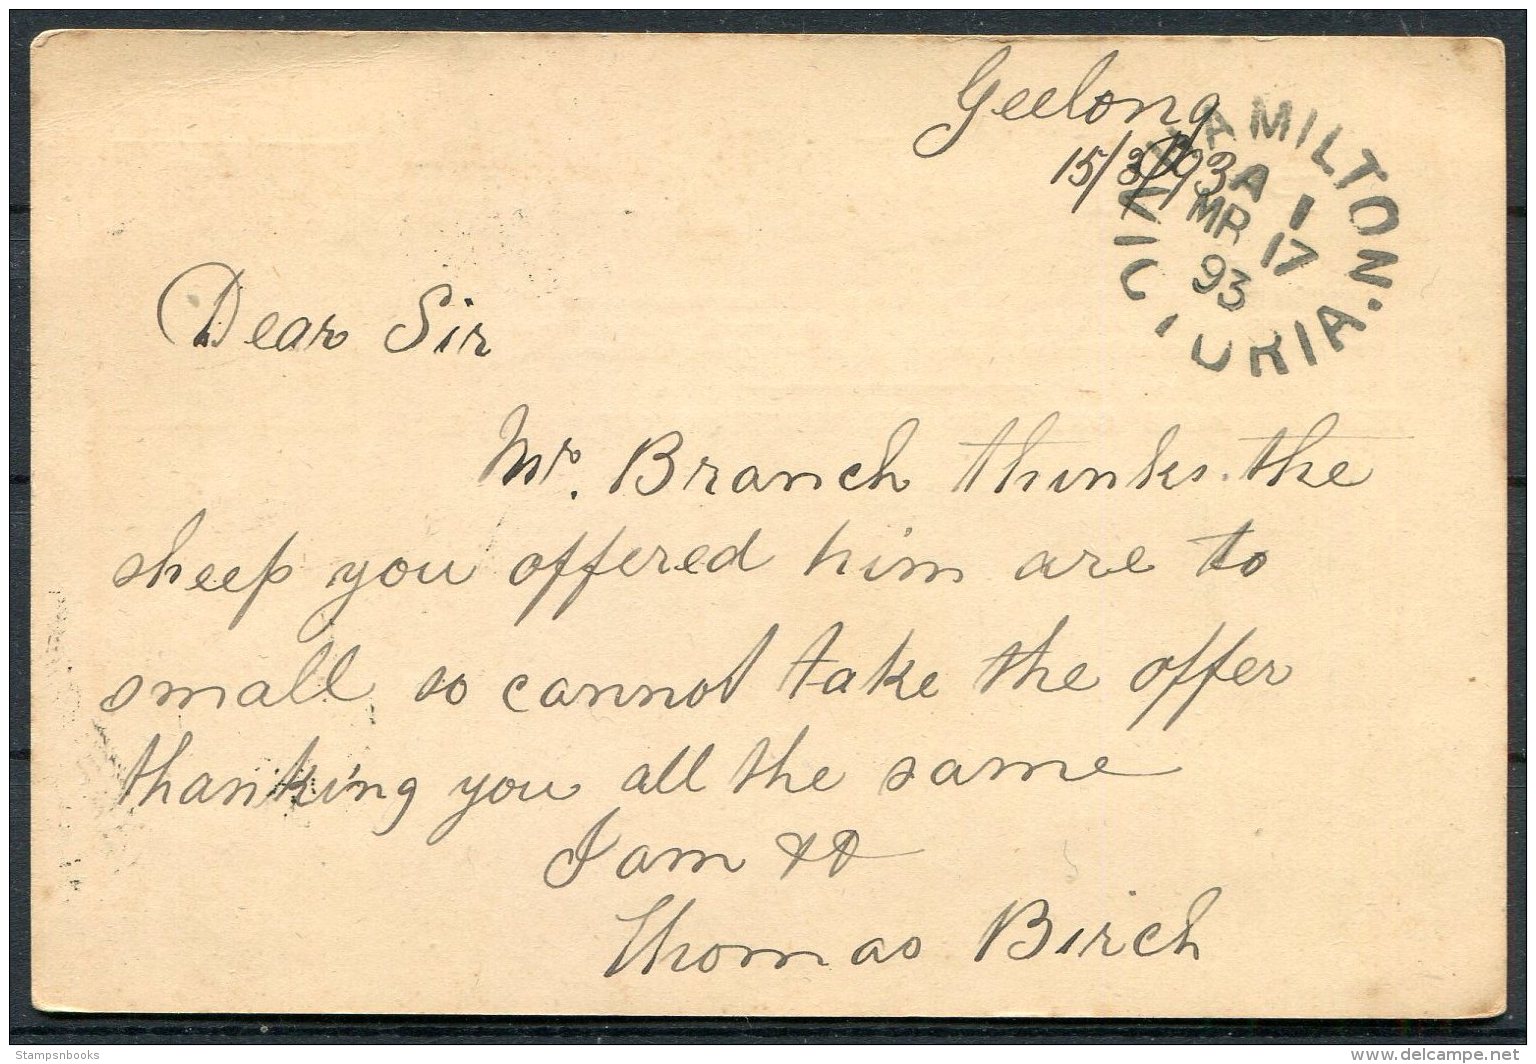 Geelong
15/3/93
HAMILTON.
A 1
MR 17
93
VICTORIA.
Dear Sir
Mr. Branch thinks the
sheep you offered him are to
small so cannot take the offer
thanking you all the same
I am
Thomas Birch
Stampsnbooks